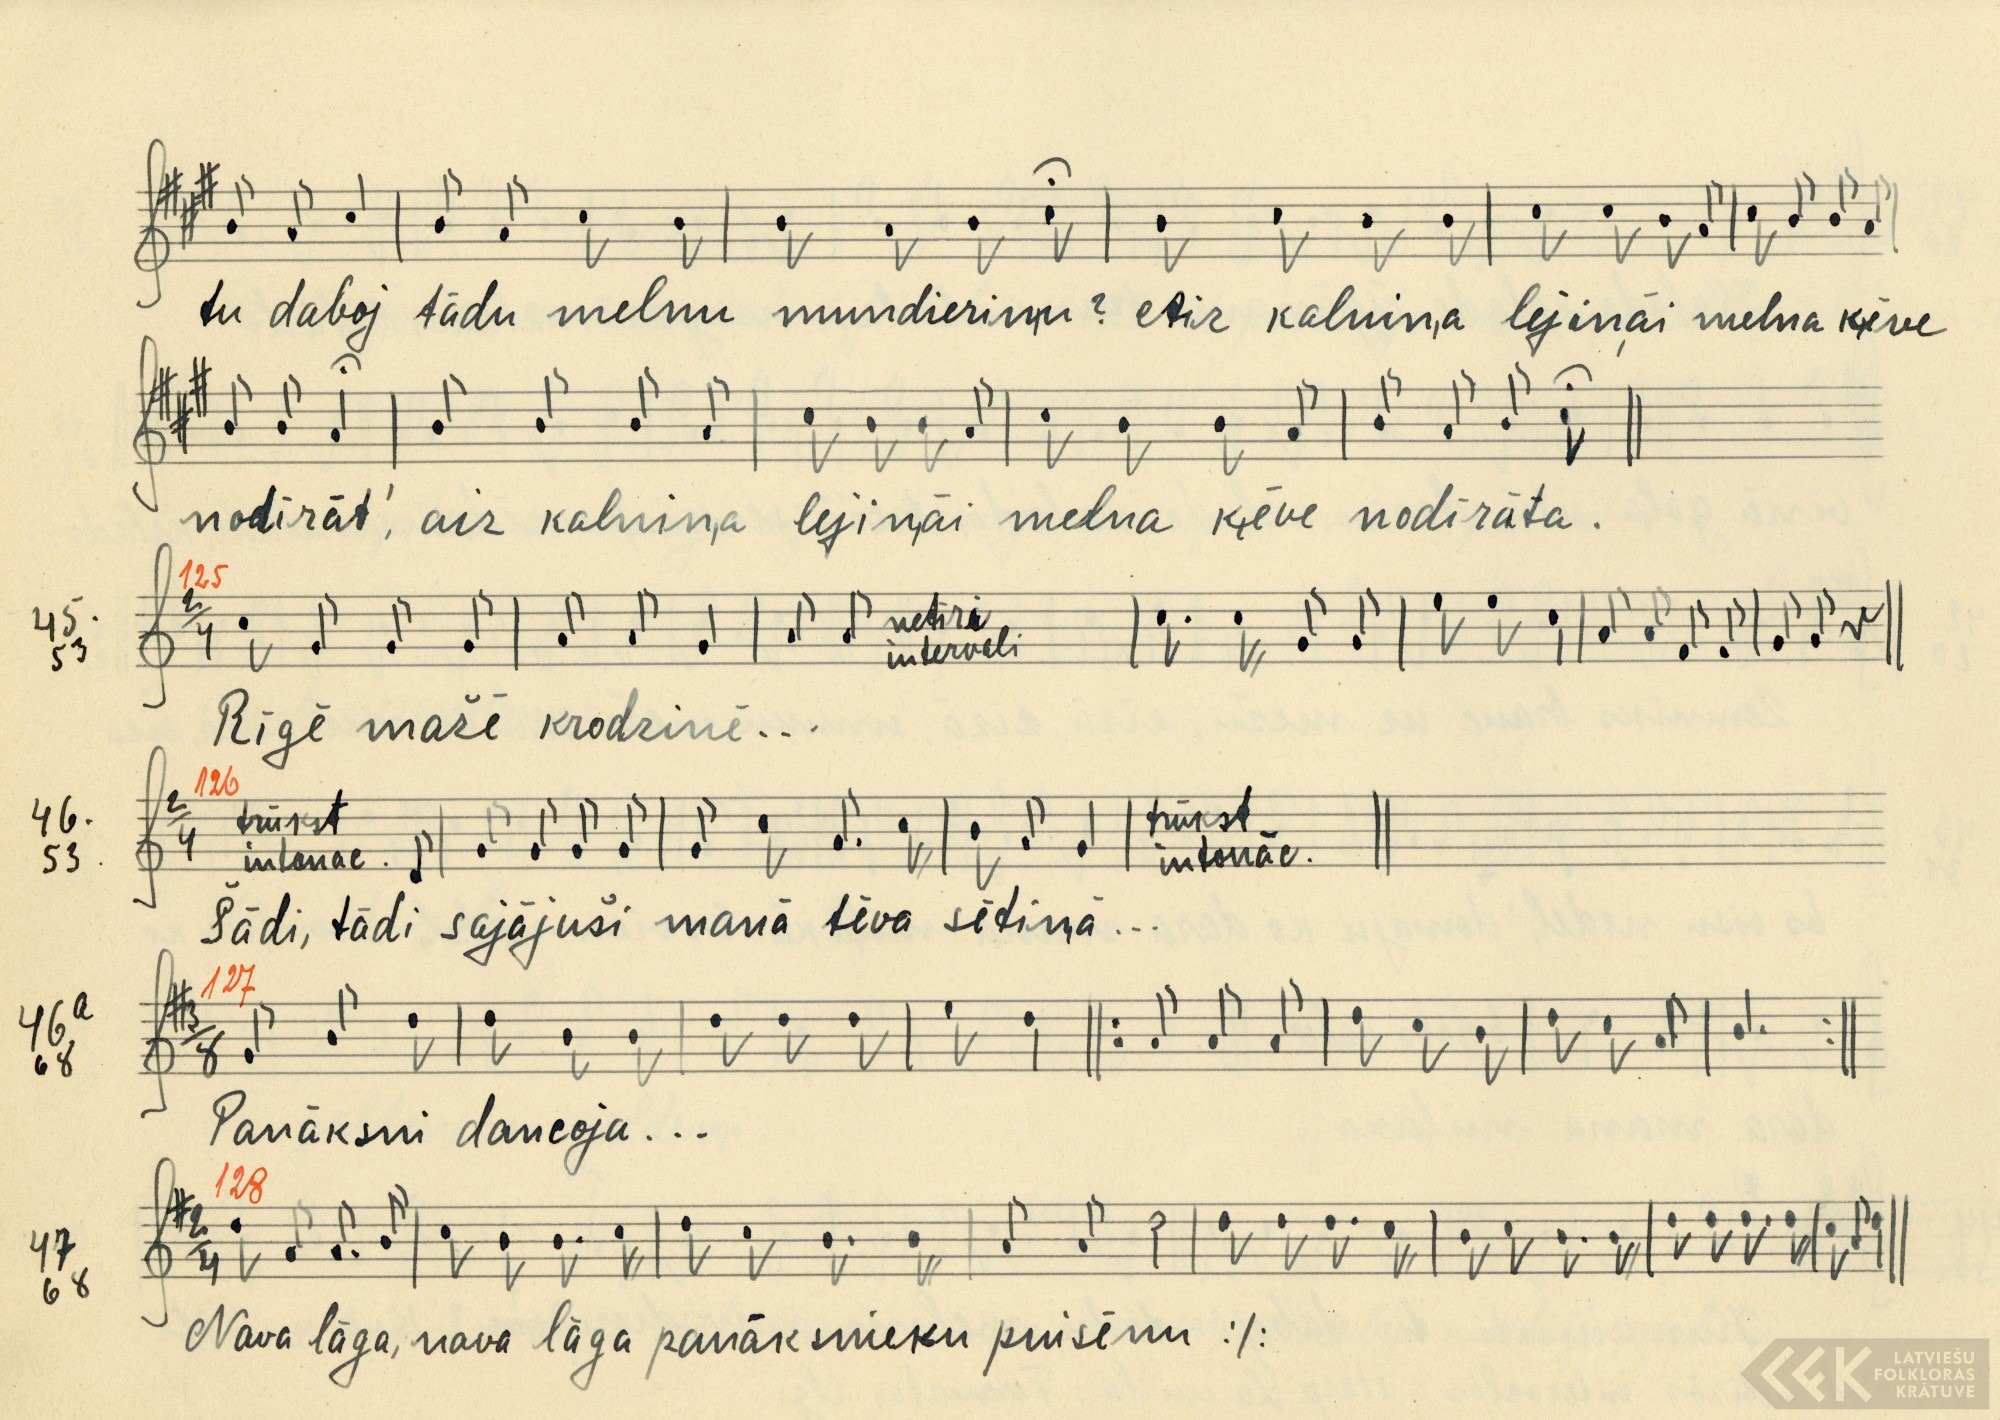 tu daboj tādu melnu mundieriņu? Aiz kalniņa lejiņāi melna ķēve
nodīrāt', aiz kalniņa lejiņāi melna ķēve nodīrāta.
125
2/4
45.
53
netīri
intervali
Rīgē mažē krodzinē...
126
2/4
46.
53.
trūkst
intonac.
trūkst
intonāc.
Šādi, tādi sajājuši manā tēva sētiņā...
127
3/8
46a
68
Panāksni dancoja...
128
2/4
47
68
Nava lāga, nava lāga panāksnieku puisēnu :/:
LATVIEŠU
FOLKLORAS
KRĀTUVE